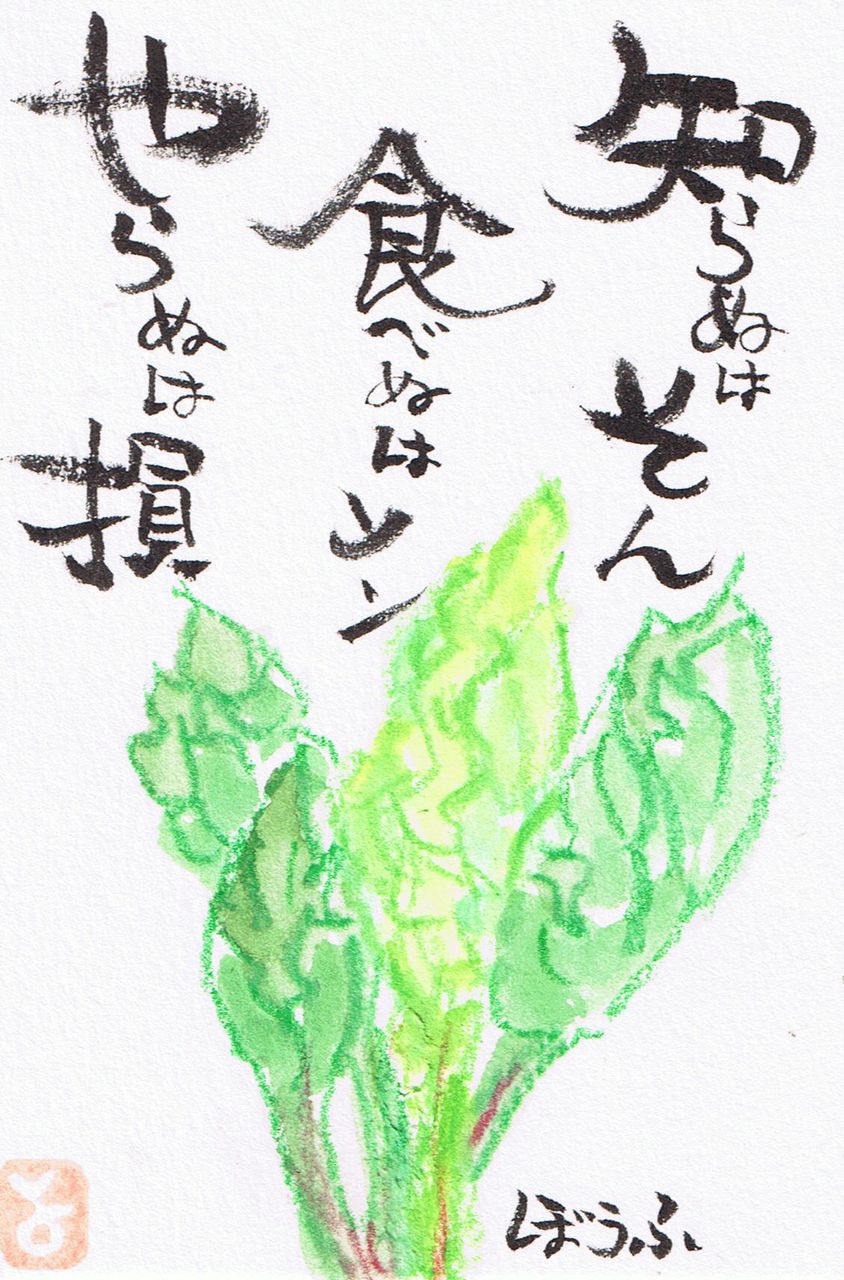 知らぬはそん
食べぬはソン
やらぬは損
ぼうふ